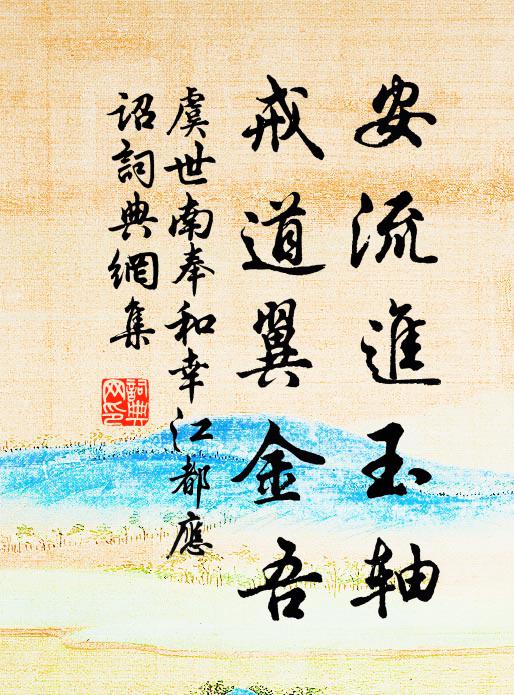 安流進玉軸
戒道翼金吾
虞世南奉和幸江都應
詔詞典網集
詞典网印